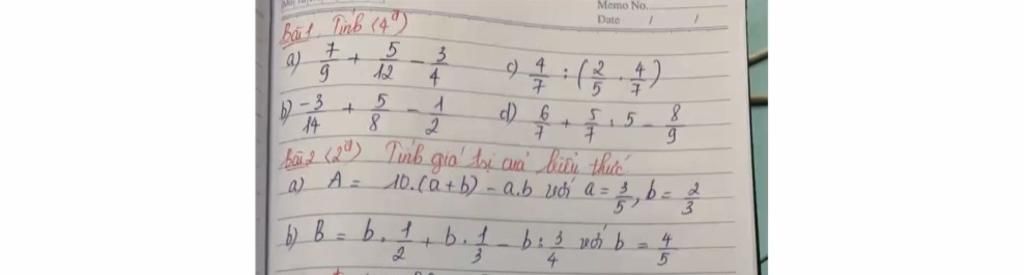 Memo No.
Date / /
Bài 1. Tính (4đ)
a) 7/9 + 5/12 - 3/4 c) 4/7 : (2/5 . 4/7)
b) -3/14 + 5/8 - 1/2 d) 6/7 + 5/7 : 5 - 8/9
Bài 2 (2đ) Tính giá trị cuả biểu thức
a) A = 10.(a+b) - a.b với a = 3/5, b = 2/3
b) B = b . 1/2 + b . 1/3 - b : 3/4 với b = 4/5